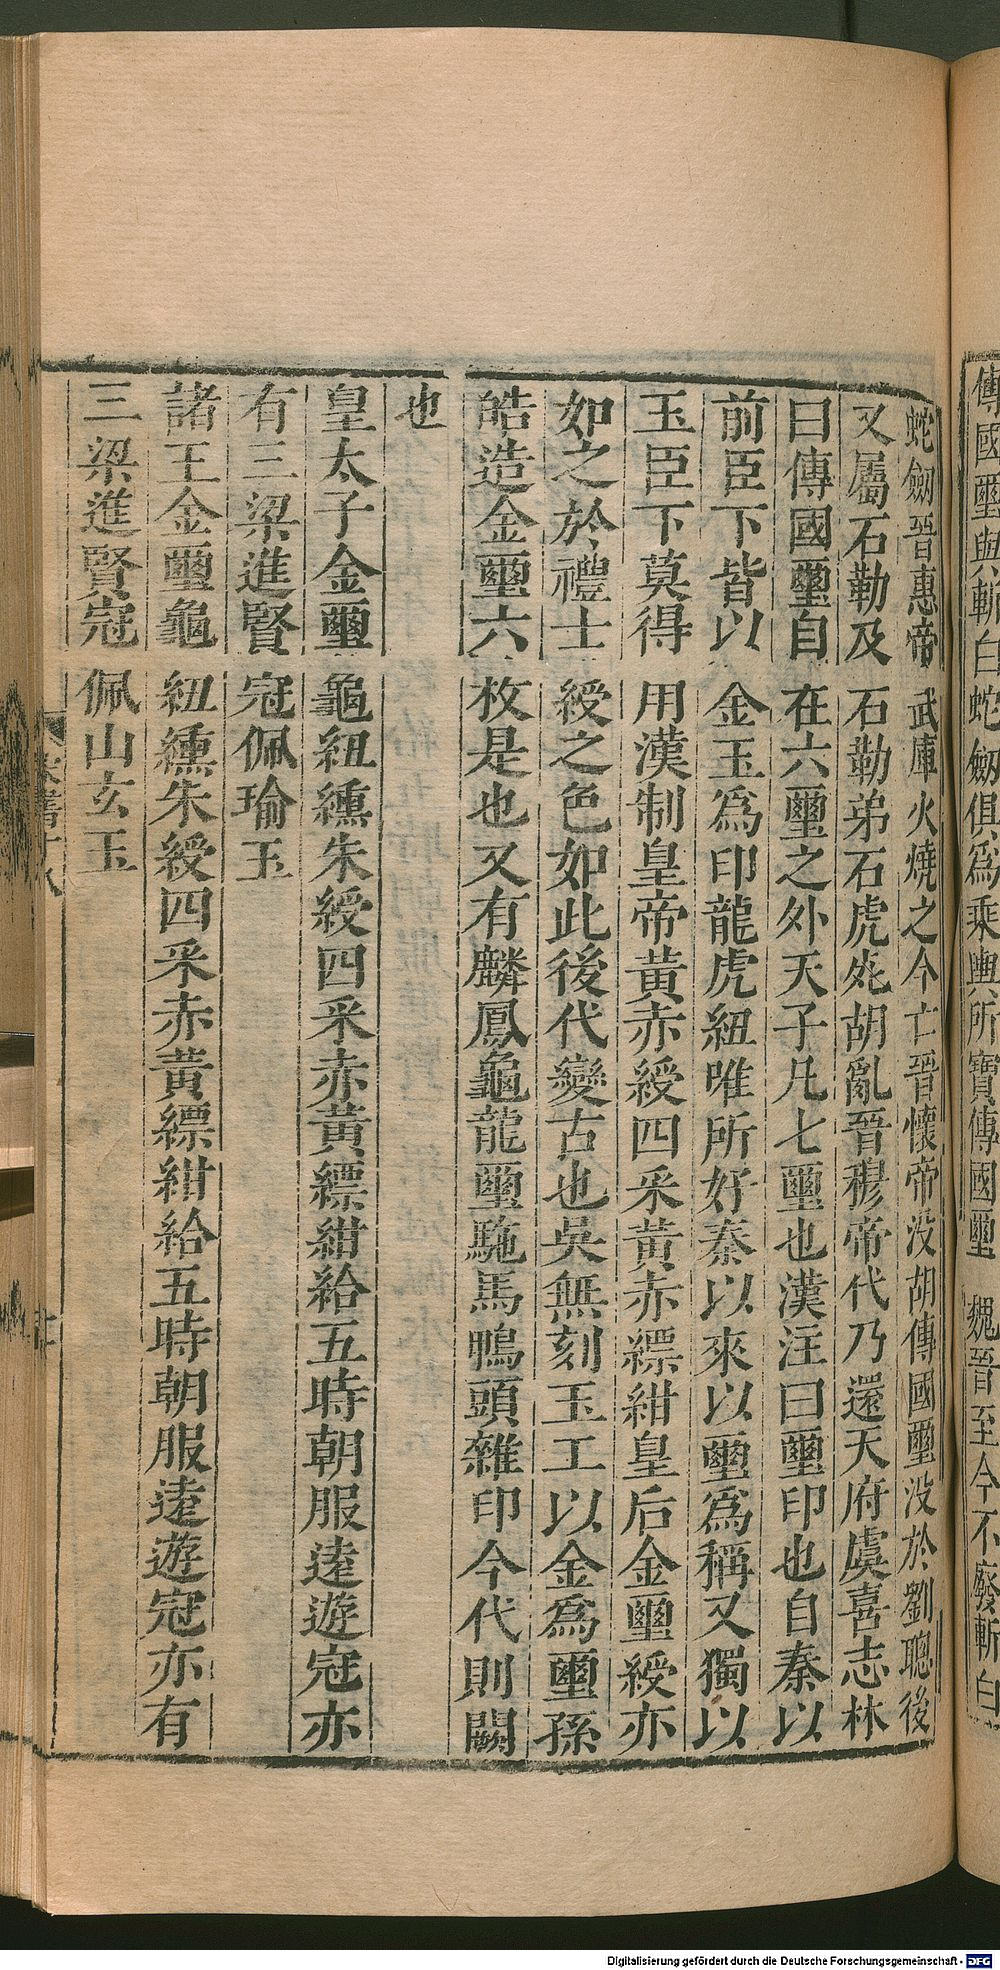 傳國璽與斬白蛇劒俱爲乘輿所寶傳國璽 魏晉至今不廢斬白
蛇劒晉惠帝武庫火燒之今亡晉懷帝没胡傳國璽没於劉聰後
又屬石勒及石勒弟石虎死胡亂晉穆帝代乃還天府虞喜志林
曰傳國璽自在六璽之外天子凡七璽也漢注曰璽印也自秦以
前臣下皆以金玉爲印龍虎紐唯所好秦以來以璽爲稱又獨以
玉臣下莫得用漢制皇帝黄赤綬四采黄赤縹紺皇后金璽綬亦
如之於禮士綬之色如此後代變古也吳無刻玉工以金爲璽孫
皓造金璽六枚是也又有麟鳳龜龍璽駞馬鴨頭雜印今代則闕
也
皇太子金璽龜紐纁朱綬四采赤黄縹紺給五時朝服逺遊冠亦
有三梁進賢冠佩瑜玉
諸王金璽龜紐纁朱綬四采赤黄縹紺給五時朝服逺遊冠亦有
三梁進賢冠佩山玄玉
Digitalisierung gefördert durch die Deutsche Forschungsgemeinschaft - DFG